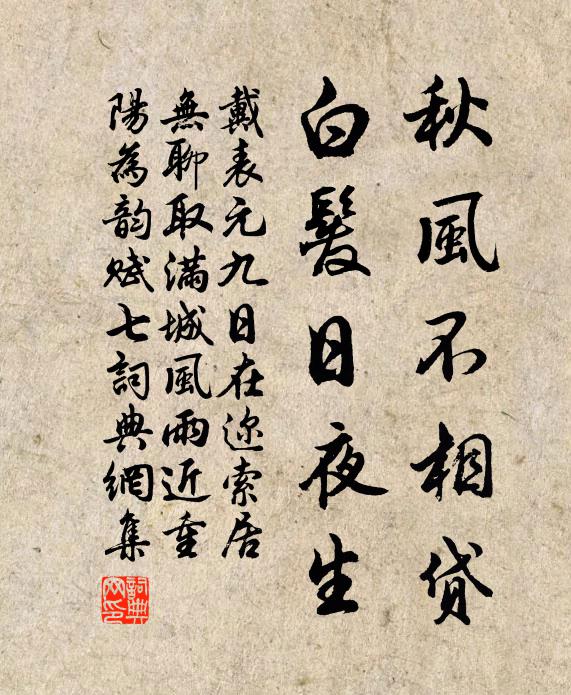 秋風不相貸
白髮日夜生
戴表元九日在迩索居
無聊取滿城風雨近重
陽為韵賦七詞典網集
詞典网印